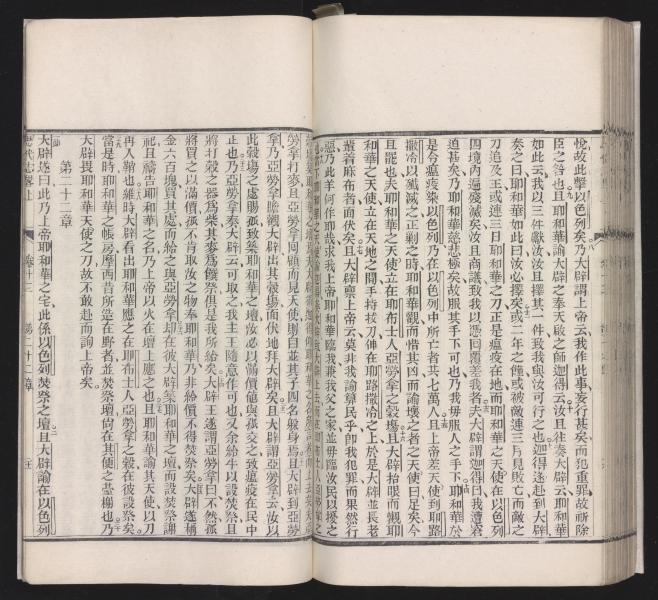 悅故此擊以色列矣乃大辟謂上帝云我作此事妄行甚矣而犯重罪故祈除
臣之咎也且耶和華諭大辟之奉天啟之師迦得云汝且往奏大辟云耶和華
如此云我以三件獻汝汝且擇其一件致我與汝可行之也迦得遂赴到大辟
奏之曰耶和華如此曰汝必擇矣或三年之饉或被敵連三月見敗亡而敵之
刀追及王或連三日耶和華之刀正是瘟疫在地而耶和華之天使在以色列
四境內遍殘滅矣汝且商議致我以憑回覆差我者夫大辟謂迦得曰我遭窘
迫甚矣乃耶和華慈悲極矣故服其手下可也乃我毋服人之手下耶和華於
是令瘟疫染以色列乃在以色列中所亡者共七萬人且上帝差天使到耶路
撒冷以殲滅之正剿之時耶和華觀而惜其凶而諭壞之者之天使曰足矣今
且罷也夫耶和華之天使立在耶布士人亞勞拿之穀塲且大辟抬眼而覩耶
和華之天使立在天地之間手持拔刀伸在耶路撒冷之上於是大辟並長老
輩着麻布者面伏矣且大辟稟上帝云莫非我諭算民乎卽我犯罪而果然行
惡乃此羊何作耶哉求我上帝耶和華臨我兼我父之家並毋臨汝民以擾之
勞拿打麥且亞勞拿回顧而見天使則自並其子四名躲身焉且大辟到亞勞
拿乃亞勞拿瞻觀大辟出其穀塲面伏地拜大辟矣且大辟謂亞勞拿云汝以
此穀塲之處賜孤致築耶和華之壇汝必以滿價賜與孤交之致瘟疫在民中
正也乃亞勞拿奏大辟云可取之我主王隨意作可也又余給牛以設焚祭且
將打穀之器爲柴其麥爲饌祭俱是我所給矣大辟王遂謂亞勞拿曰不然孤
將買之以滿價孤不肯取汝之物奉耶和華乃非給價不得焚祭矣大辟遂稱
金六百塊買其處而給之與亞勞拿却在彼大辟築耶和華之壇而設焚祭謝
祀且禱告耶和華之名乃上帝以火在壇上應之也且耶和華諭其天使以刀
再入鞘也維時大辟看出耶和華應之在耶布士人亞勞拿之穀在彼設祭矣
當是時耶和華之帳房摩西昔所造在野者並焚祭壇尙在其便之基棚也乃
大辟畏耶和華天使之刀故不敢赴而諭上帝矣
第二十二章
大辟遂曰此乃上帝耶和華之宅此係以色列焚祭之壇且大辟諭在以色列
歷代志畧上 卷十三 第二十二章